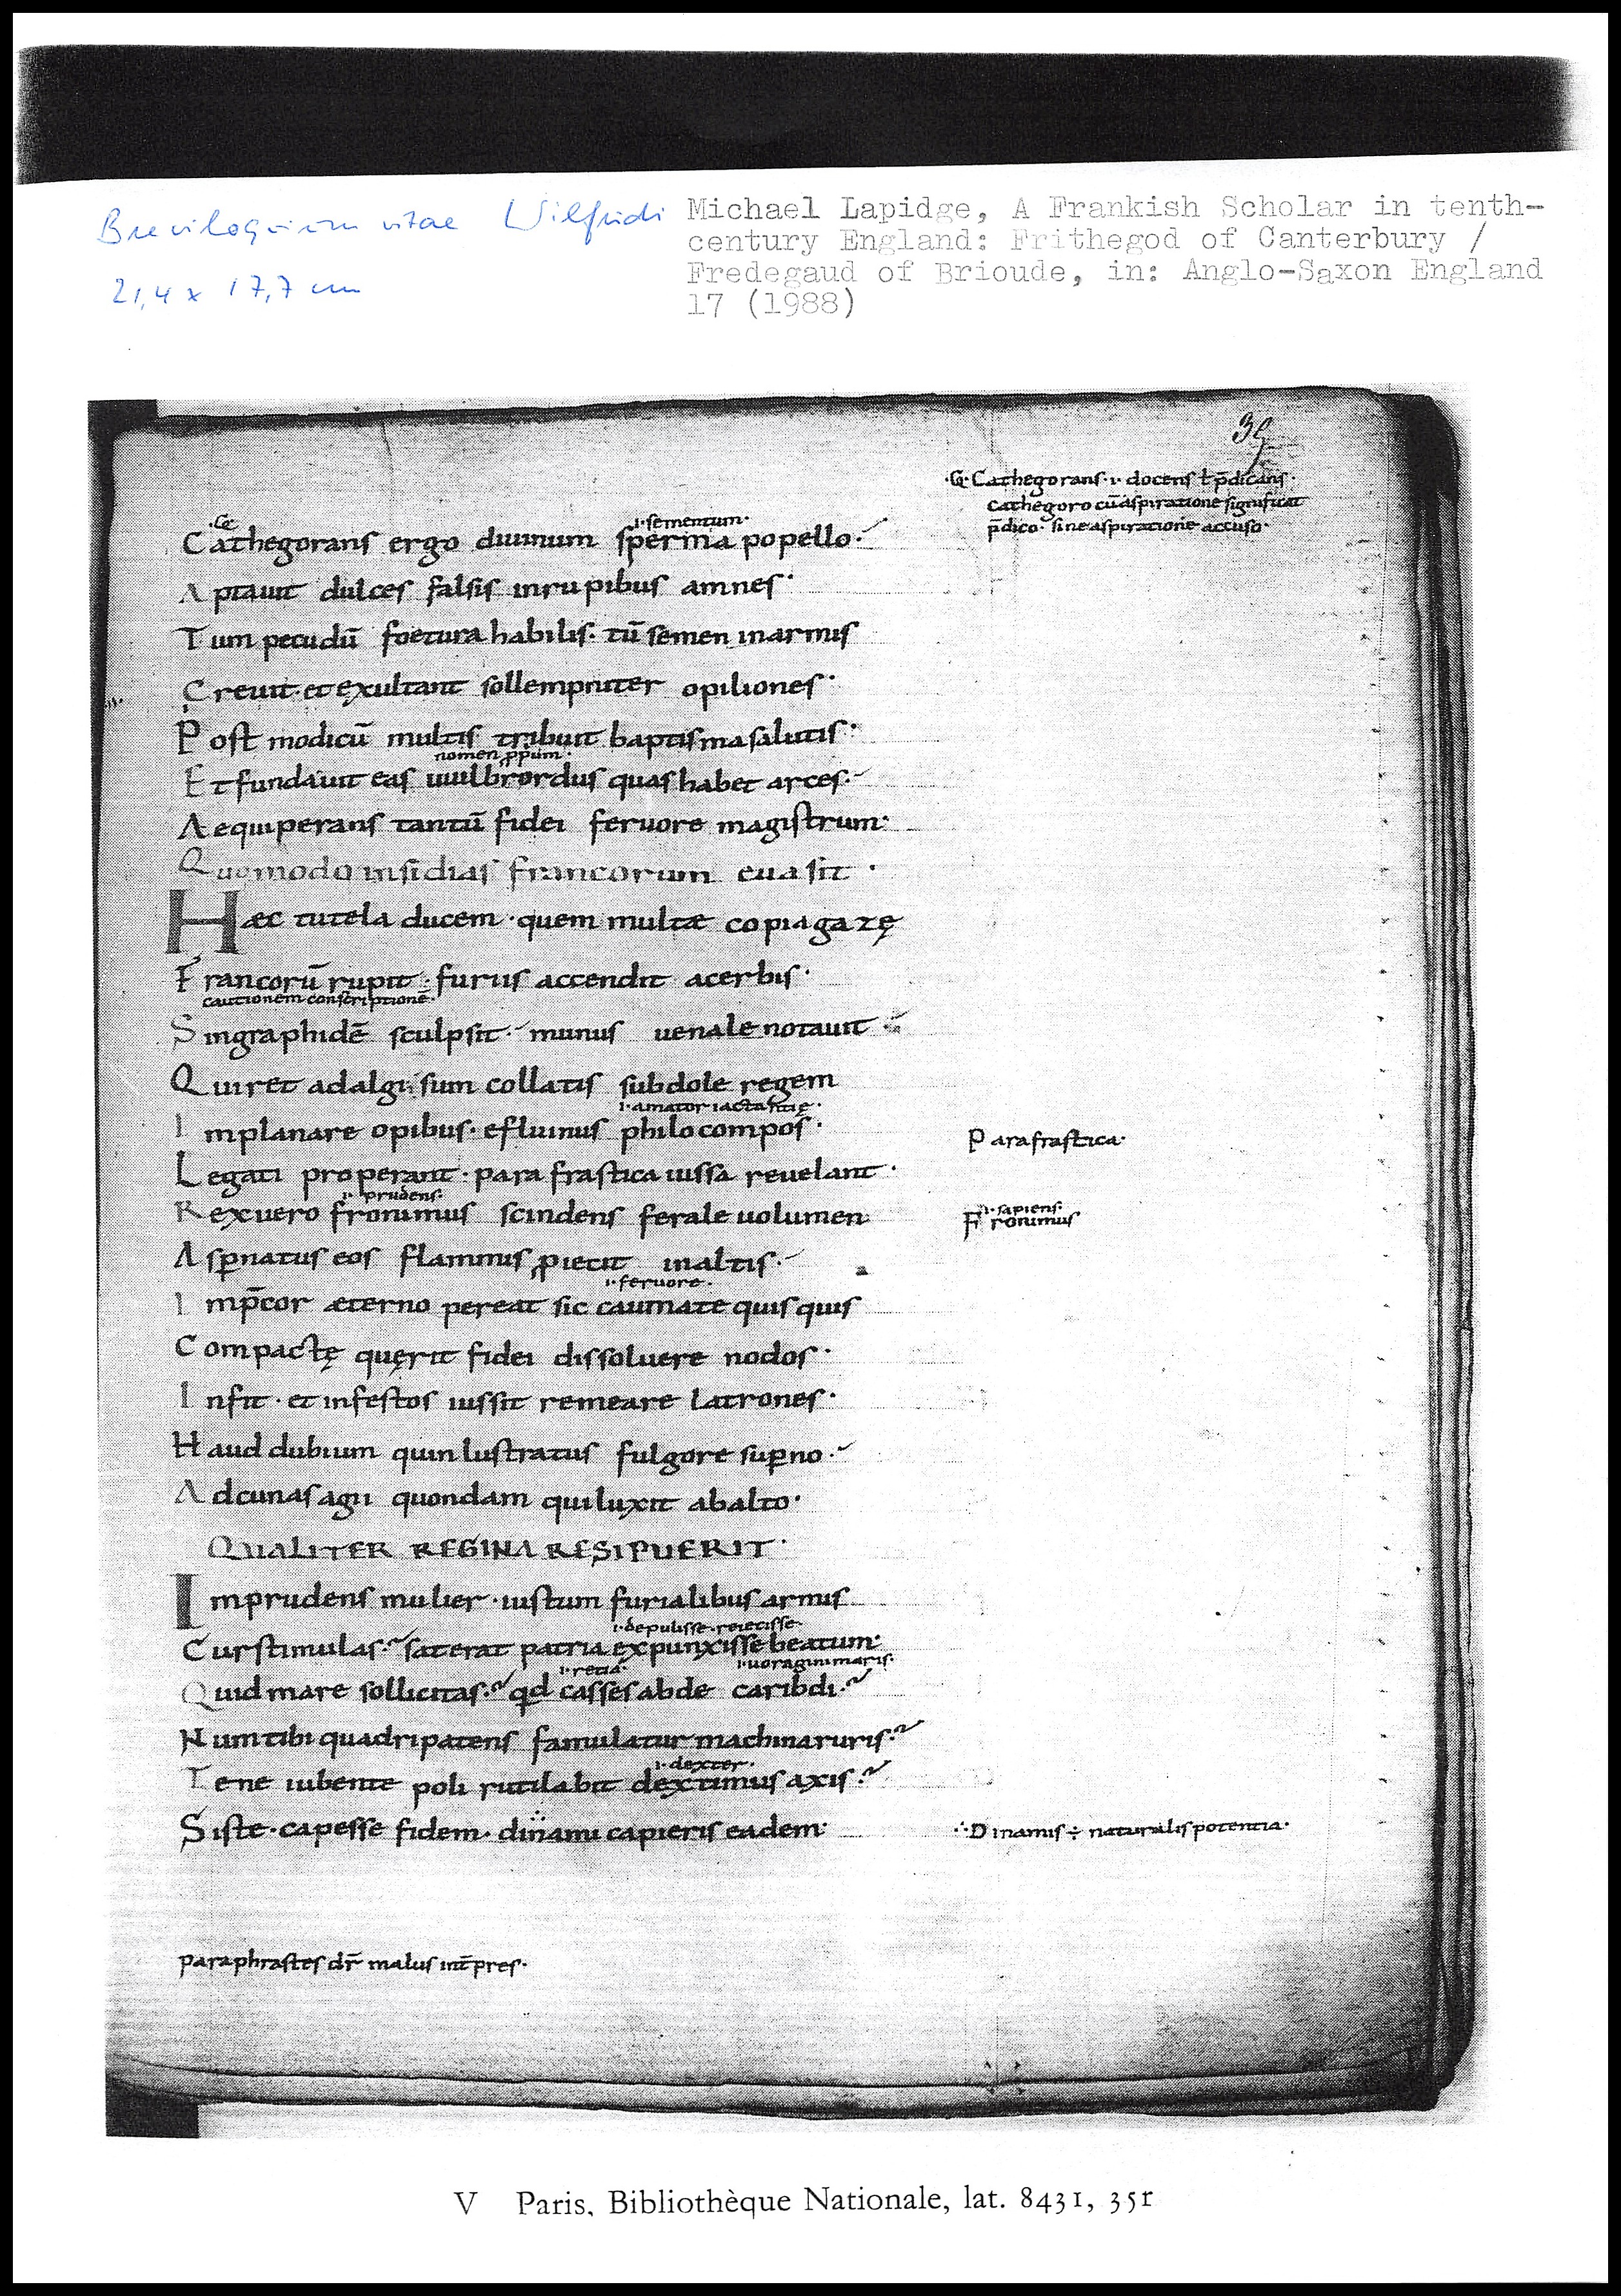 Breviloquium vitae Wilfridi
21,4 x 17,7 cm
Michael Lapidge, A Frankish Scholar in tenth-
century England: Frithegod of Canterbury /
Fredegaud of Brioude, in: Anglo-Saxon England
17 (1988)
35
Cathegorans ·i· docens ł p̄dicans·
cathegoro cū aspiratione significat
p̄dico· sine aspiratione accuso·
·i· sementum·
Cathegorans ergo diuinum sperma popello·
Aptauit dulces salsis in rupibus amnes·
Tum pecudū foetura habilis· tū semen in armis
Creuit· et exultant sollempniter opiliones·
Post modicū multis tribuit baptisma salutis·
nomen ꝓpium·
Et fundauit eas uuilbrordus quas habet arces·
Aequiperans tantū fidei feruore magistrum·
Quomodo insidias francorum euasit·
Haec tutela ducem· quem multae copia gazę
Francorū rupit· furiis accendit acerbis·
cautionem conscriptionē·
Singraphidē sculpsit· munus uenale notauit
Quiret adalgisum collatis subdole regem
·i· amator iactantię·
Implanare opibus· efluinus philocompos·
Parafrastica·
Legati properant· parafrastica iussa reuelant·
·i· prudens·
Rex uero fronimus scindens ferale uolumen
·i· sapiens·
Fronimus
Asꝑnatus eos flammis ꝓiecit in altis·
·i· feruore·
Imp̄cor aeterno pereat sic caumate quisquis
Compactę quęrit fidei dissoluere nodos·
Infit· et infestos iussit remeare latrones·
Haud dubium quin lustratus fulgore suꝑno·
Ad cunas agii quondam qui luxit ab alto·
QUALITER REGINA RESIPUERIT·
Imprudens mulier· iustum furialibus armis
·i· depulisse· reiecisse·
Cur stimulas· sat erat patria expunxisse beatum·
·i· retia· ·i· uoragini maris·
Quid mare sollicitas· qd casses abde caribdi·
Num tibi quadripatens famulatur machina ruris·
·i· dexter·
Te ne iubente poli rutilabit dextimus axis·
Siste· capesse fidem· dinami capieris eadem·
∴ Dinamis ÷ naturalis potentia·
paraphrastes dr̄ malus int̄pres·
V Paris, Bibliothèque Nationale, lat. 8431, 35r